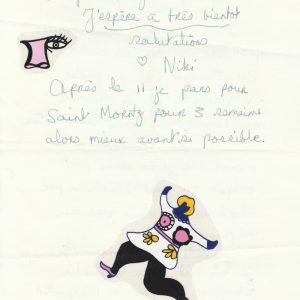 J'espère a très bientot
salutations
♡ Niki
Après le 11 je pars pour
Saint Moritz pour 3 semaine
alors mieux avant si possible.